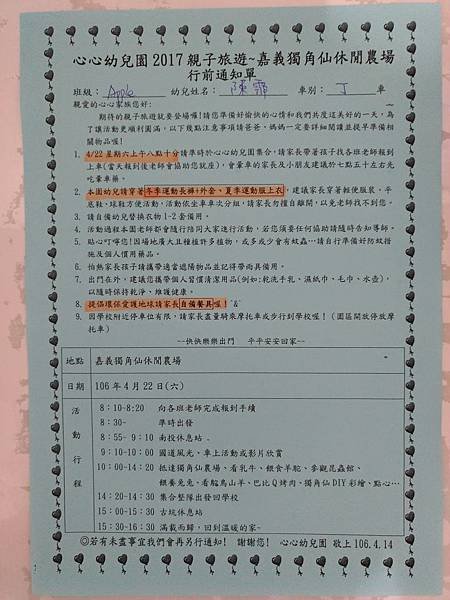 心心幼兒園 2017 親子旅遊~嘉義獨角仙休閒農場
行前通知單
班級：Apple 幼兒姓名：陳霏 車別：丁 車
親愛的心心家族您好：
期待的親子旅遊就要登場囉！請您準備好愉快的心情和我們共度這美好的一天，為
了讓活動更順利圓滿，以下幾點注意事項請爸、媽媽一定要詳細閱讀並提早準備相
關物品喔！
1. 4/22 星期六上午八點十分請準時於心心幼兒園集合，請家長帶著孩子找各班老師報到
上車(當天報到後老師會協助您就座)，會暈車的家長及小朋友建議於七點五十左右先
吃暈車藥。
2. 本園幼兒請穿著冬季運動長褲+外套，夏季運動服上衣，建議家長穿著輕便服裝、平
底鞋、球鞋方便活動，活動依坐車車次分組，請家長勿擅自離開，以免老師找不到您。
3. 請自備幼兒替換衣物 1-2 套備用。
4. 活動過程本園老師都會隨行陪同大家進行活動，若您須要任何協助請隨時告知導師。
5. 貼心叮嚀您！因場地廣大且種植許多植物，或多或少會有蚊蟲…請自行準備好防蚊措
施及個人慣用藥品。
6. 怕熱家長孩子請攜帶適當遮陽物品並記得帶雨具備用。
7. 出門在外，建議您攜帶個人習慣清潔用品(例如:乾洗手乳、濕紙巾、毛巾、水壺)，
以隨時保持乾淨、維護健康。
8. 提倡環保愛護地球請家長自備餐具喔！^&^
9. 因學校附近停車位有限，請家長盡量騎乘摩托車或步行到學校喔！（園區開放停放摩
托車）
--快快樂樂出門 平平安安回家--
地點 嘉義獨角仙休閒農場
日期 106 年 4 月 22 日(六)
活動行程
8：10-8:20 向各班老師完成報到手續
8：30- 準時出發
8：55- 9：10 南投休息站
9：10-10：00 國道風光、車上活動或影片欣賞
10：00-14：20 抵達獨角仙農場、看乳牛、餵食羊駝、參觀昆蟲館、
餵養兔兔、看駝鳥山羊、巴比 Q 烤肉、獨角仙 DIY 彩繪、點心…
14：20-14：30 集合整隊出發回學校
15：00-15：30 古坑休息站
15：30-16：30 滿載而歸，回到溫暖的家~
◎若有未盡事宜我們會再另行通知！ 謝謝您！ 心心幼兒園 敬上 106.4.14